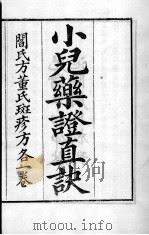 小兒藥證直訣
閻氏方董氏斑疹方各一卷